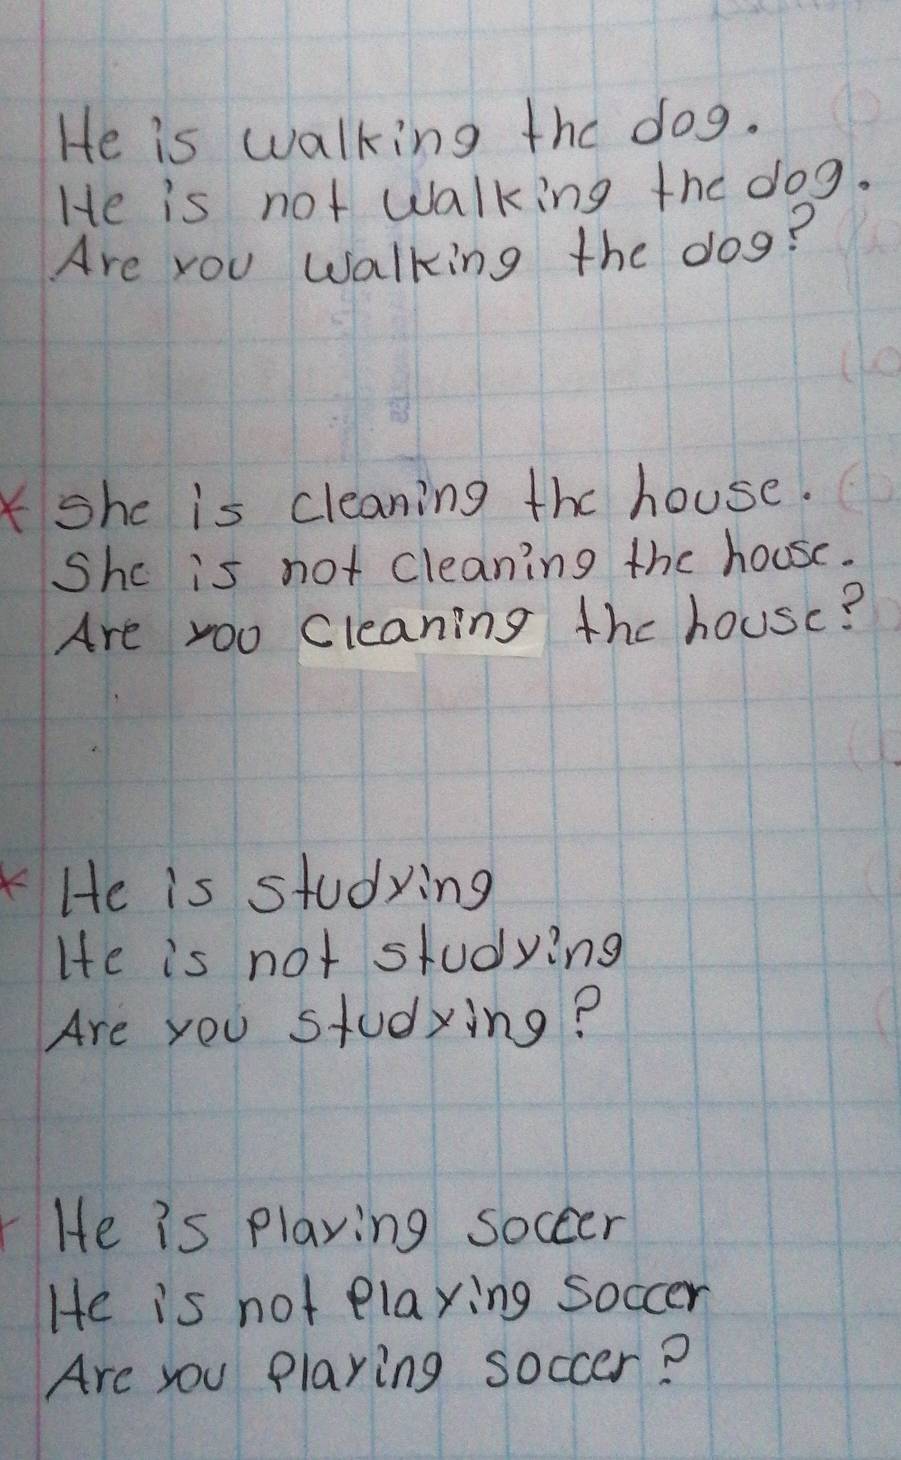 He is walking the dog.
He is not walking the dog.
Are you walking the dog?
She is cleaning the house.
She is not cleaning the house.
Are you cleaning the house?
He is studying
He is not studying
Are you studying?
He is Playing soccer
He is not Playing soccer
Are you Playing soccer?